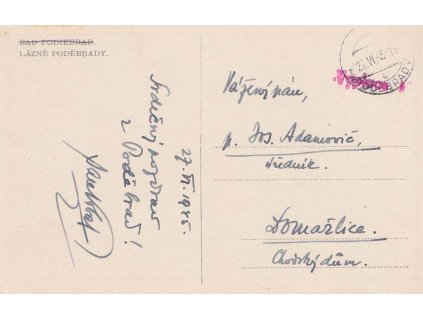 BAD PODIEBRAD.
LÁZNĚ PODĚBRADY.
27. VI. 1945.
Srdečný pozdrav
z Poděbrad!
Vážený pán,
p. Jos. Adamovič,
úředník.
Domažlice.
Chodský dům.
PODĚBRADY